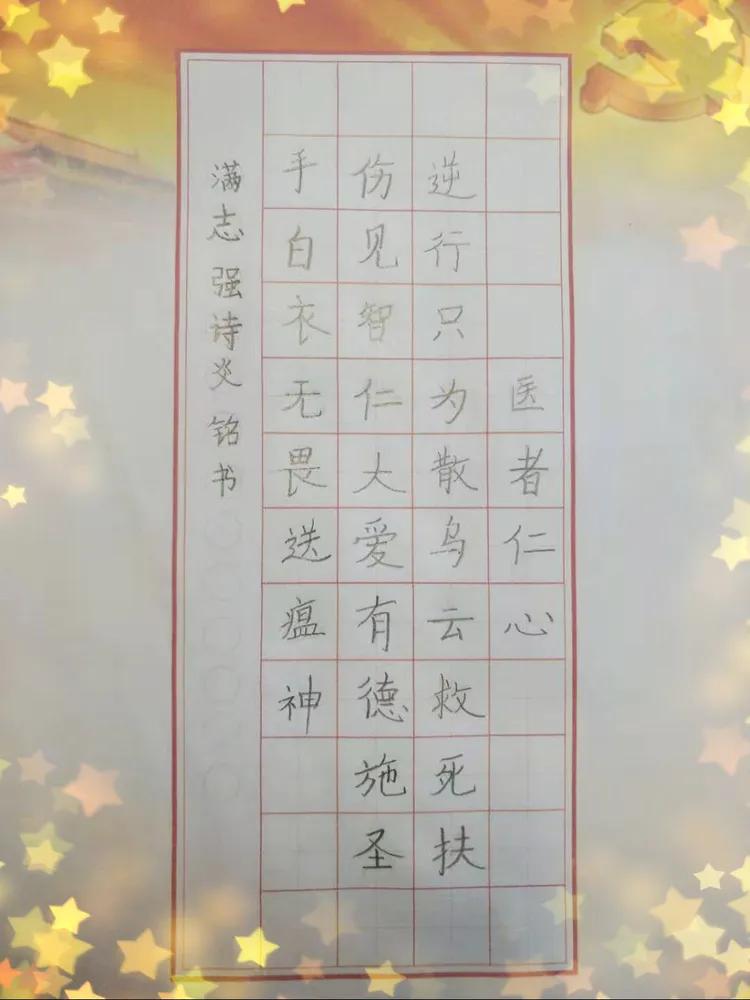 医者仁心
逆行只为散乌云救死扶
伤见智仁大爱有德施圣
手白衣无畏送瘟神
满志强诗炎铭书